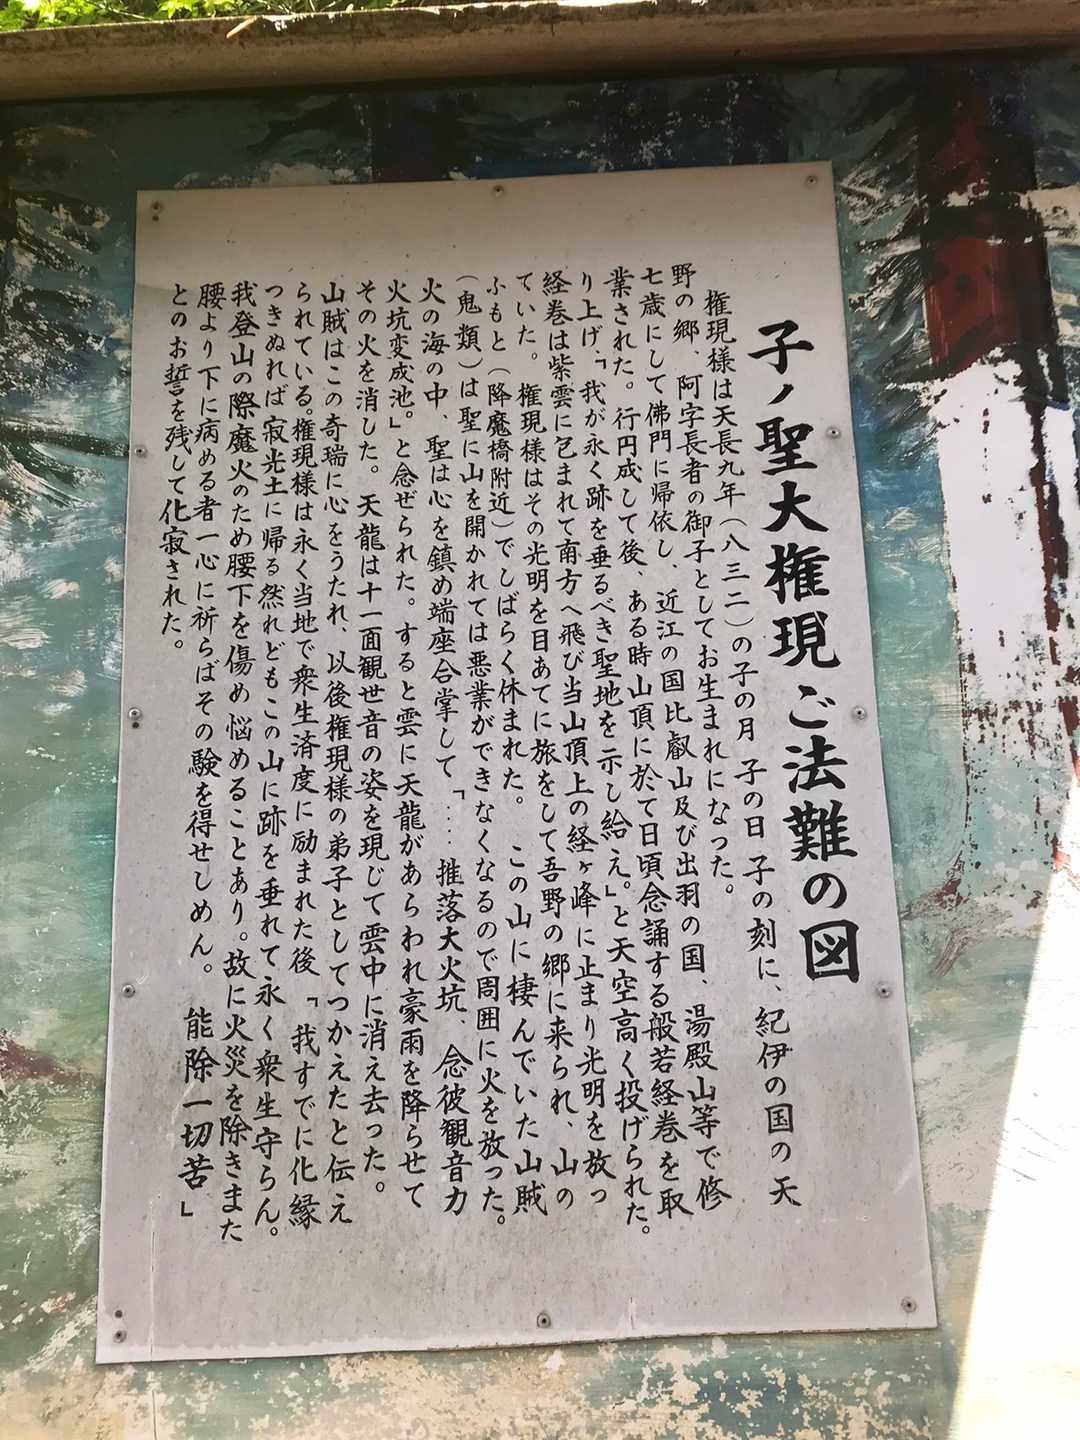 子ノ聖大権現ご法難の図
権現様は天長九年(八三二)の子の月 子の日 子の刻に、紀伊の国の天
野の郷、阿字長者の御子としてお生まれになった。
七歳にして佛門に帰依し、近江の国比叡山及び出羽の国、湯殿山等で修
業された。行円成して後、ある時山頂に於て日頃念誦する般若経巻を取
り上げ、「我が永く跡を垂るべき聖地を示し給え。」と天空高く投げられた。
経巻は紫雲に包まれて南方へ飛び当山頂上の経ヶ峰に止まり光明を放っ
ていた。権現様はその光明を目あてに旅をして吾野の郷に来られ、山の
ふもと(降魔橋附近)でしばらく休まれた。この山に棲んでいた山賊
(鬼類)は聖に山を開かれては悪業ができなくなるので周囲に火を放った。
火の海の中、聖は心を鎮め端座合掌して「‥‥推落大火坑、念彼観音力
火坑変成池。」と念ぜられた。すると雲に天龍があらわれ豪雨を降らせて
その火を消した。天龍は十一面観世音の姿を現じて雲中に消え去った。
山賊はこの奇瑞に心をうたれ、以後権現様の弟子としてつかえたと伝え
られている。権現様は永く当地で衆生済度に励まれた後「我すでに化縁
つきぬれば寂光土に帰る然れどもこの山に跡を垂れて永く衆生守らん。
我登山の際魔火のため腰下を傷め悩めることあり。故に火災を除きまた
腰より下に病める者一心に祈らばその験を得せしめん。能除一切苦」
とのお誓を残して化寂された。